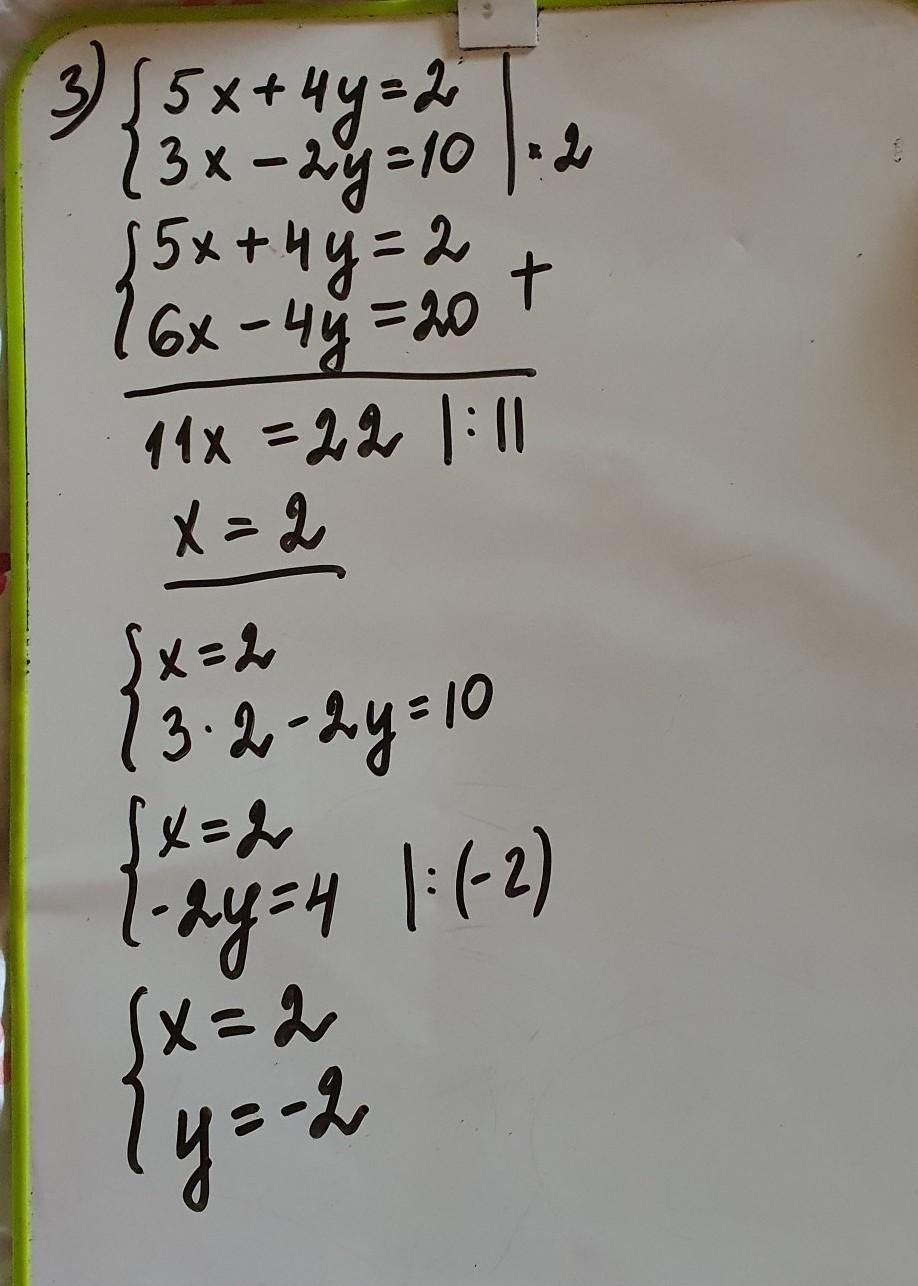 3) { 5x+4y=2
{ 3x-2y=10 |·2
{ 5x+4y=2 +
{ 6x-4y=20
11x=22 |:11
x=2
{ x=2
{ 3·2-2y=10
{ x=2
{ -2y=4 |:(-2)
{ x=2
{ y=-2